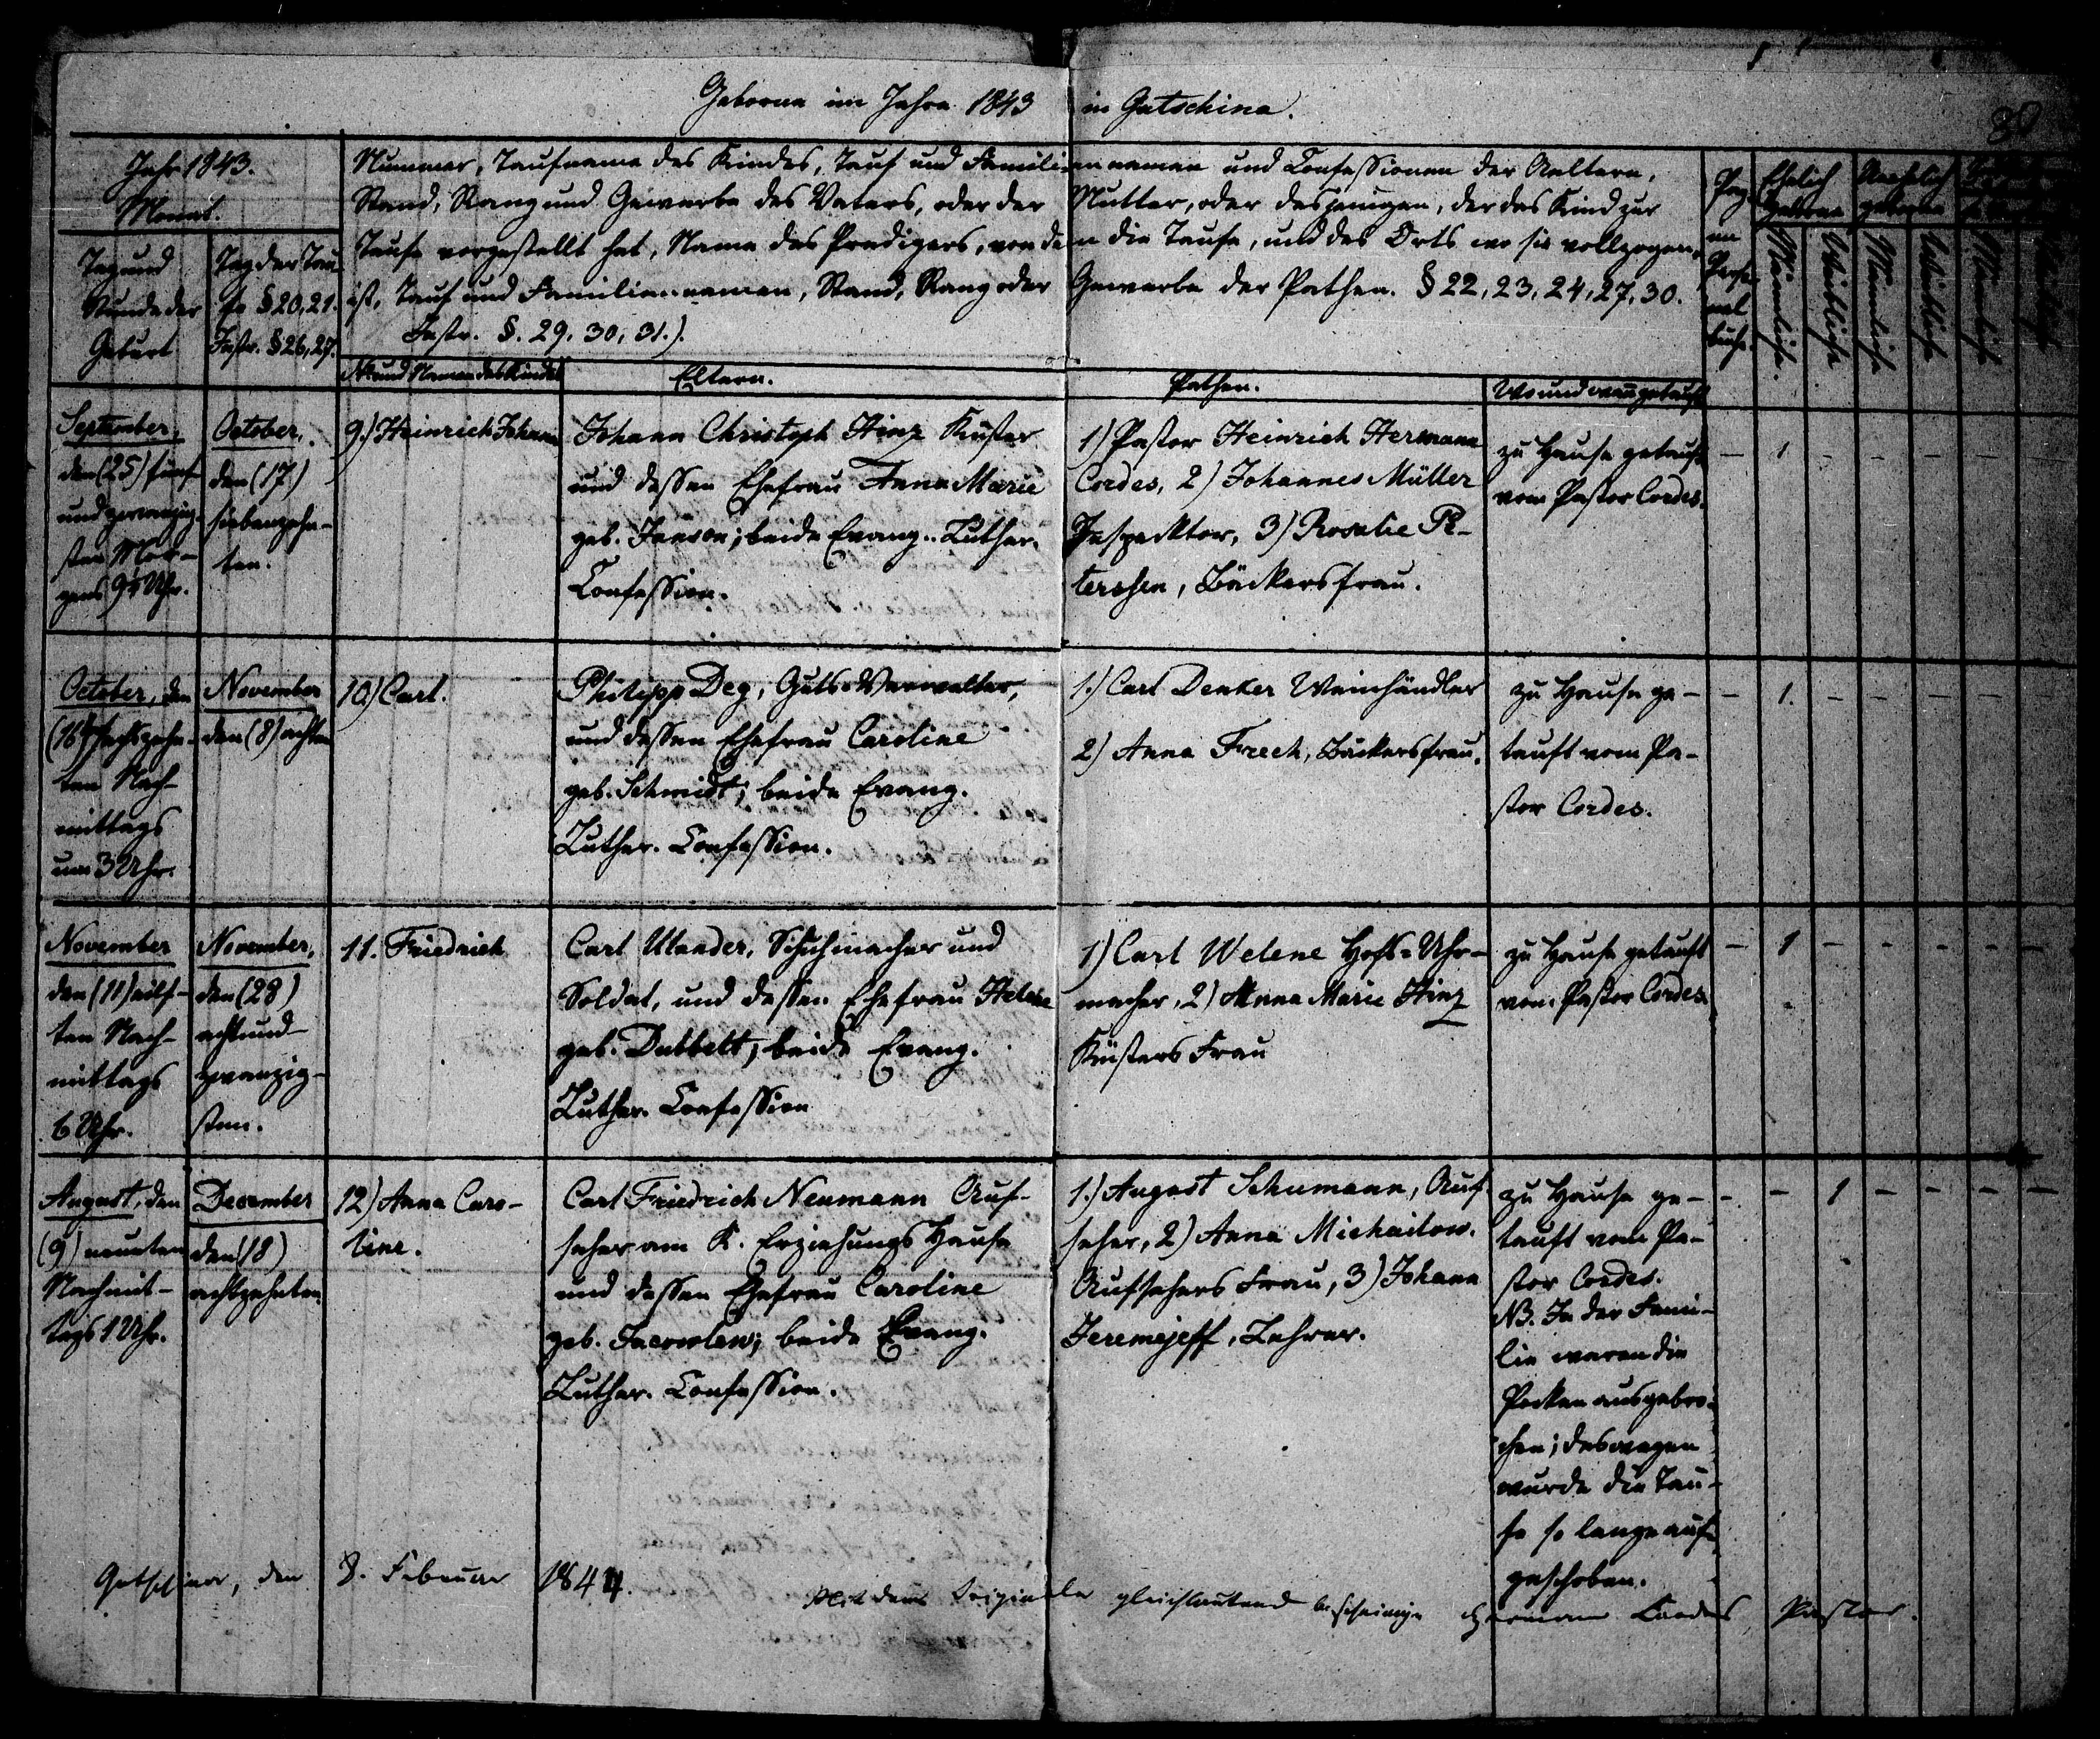 Geborne im Jahre 1843 in Gatschina.
Jahr 1843.
Monat.
Tag und
Stunde der
Geburt
Tag der Tau-
fe §20,21.
Instr. §26,27.
Nummer, Taufname des Kindes, Tauf und Familiennamen und Confessionen der Aeltern,
Stand, Rang und Gewerbe des Vaters, oder der Mutter, oder desjenigen, der das Kind zur
Taufe vorgestellt hat, Name des Predigers, von dem die Taufe, und des Orts wo sie vollzogen,
ist, Tauf und Familiennamen, Stand, Rang oder Gewerbe der Pathen. §22, 23, 24, 27, 30.
Instr. §. 29, 30, 31.).
№ und Namen des Kindes
Eltern.
Pathen.
Wo und wan getauft
Pag
im
Perso-
nal
buche.
Ehelich
geborne
Unehelich
geborne
Männliche.
Weibliche
Männliche
Weibliche
Männliche
September,
den (25) fünf-
und zwanzig-
sten Mor-
gens 9½ Uhr.
October,
den (17)
siebenzehn-
ten.
9.) Heinrich Johann
Johann Christoph Hinz Küster
und dessen Ehefrau Anna Marie
geb. Janson; beide Evang. Luther.
Confession.
1) Pastor Heinrich Hermann
Cordes, 2) Johannes Müller
Inspecktor, 3) Rosalie Pe-
terssen, Bäckersfrau.
zu Hause getauft
vom Pastor Cordes.
— 1 — — — — —
October, den
(16) sechszehn-
ten Nach-
mittags
um 3 Uhr.
November
den (8) achten
10) Carl.
Philipp Deg, Guts-Verwalter,
und dessen Ehefrau Caroline
geb. Schmidt; beide Evang.
Luther. Confession.
1.) Carl Denker Weinhändler
2) Anna Frech, Bäckersfrau.
zu Hause ge-
tauft vom Pa-
stor Cordes.
— 1. — — — — —
November
den (11) eilf-
ten Nach-
mittags
6 Uhr.
November,
den (28)
achtund-
zwanzig-
sten.
11. Friedrich
Carl Ulander, Schuhmacher und
Soldat, und dessen Ehefrau Helene
geb. Dubbelt; beide Evang.
Luther. Confession
1) Carl Welene Hofs-Uhr-
macher, 2) Anna Marie Hinz
Küsters Frau
zu Hause getauft
vom Pastor Cordes.
— 1 — — — — —
August, den
(9) neunten
Nachmit-
tags 1 Uhr.
December
den (18)
achtzehnten
12) Anna Caro-
line.
Carl Friedrich Neumann Auf-
seher am K. Erziehungs Hause
und dessen Ehefrau Caroline
geb. beide Evang.
Luther. Confession.
1.) August Schumann, Auf-
seher, 2) Anna Michailow.
Aufsehers Frau, 3) Johann
Jeremejeff, Lehrer.
zu Hause ge-
tauft vom Pa-
stor Cordes.
NB. In der Fami-
lie waren die
Pocken ausgebro-
chen; deswegen
wurde die Tau-
fe so lange auf-
geschoben.
— — 1 — — — —
Gatschina, den 8. Februar 1844.
Mit dem Originale gleichlautend bescheinige Hermann Cordes, Pastor.